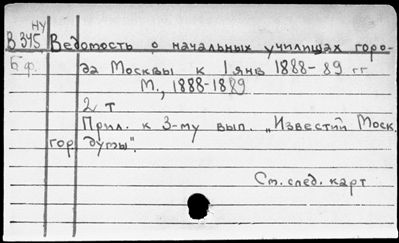 НУ
В 345 Ведомость о начальных училищах горо-
Б.ф. да Москвы к 1 янв 1888-89 гг
М., 1888-1889
2 т
Прил. к 3-му вып. „Известий Моск.
гор. думы".
См. след. карт